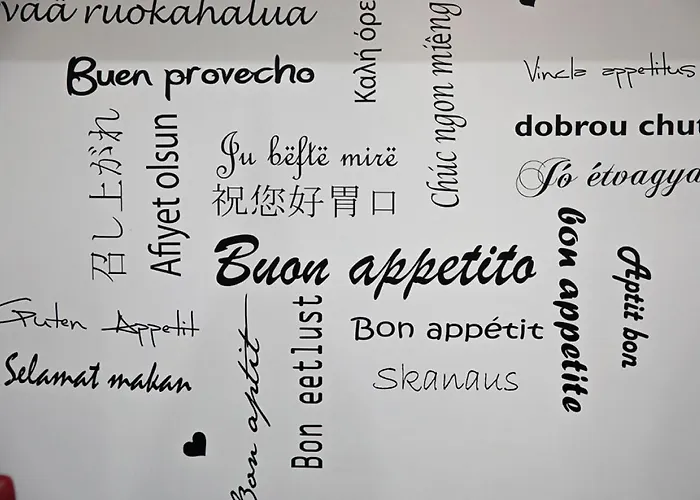 vaä ruokahalua
Buen provecho
Καλή όρε
Chúc ngon miêng
Vincla appetitus
dobrou chut
Jó étvágya
召し上がれ
Afiyet olsun
Ju bëftë mirë
祝您好胃口
Buon appetito
bon appetite
Aptit bon
Guten Appetit
Bon appétit
Selamat makan
Skanaus
Bon aptit
Bon eetlust